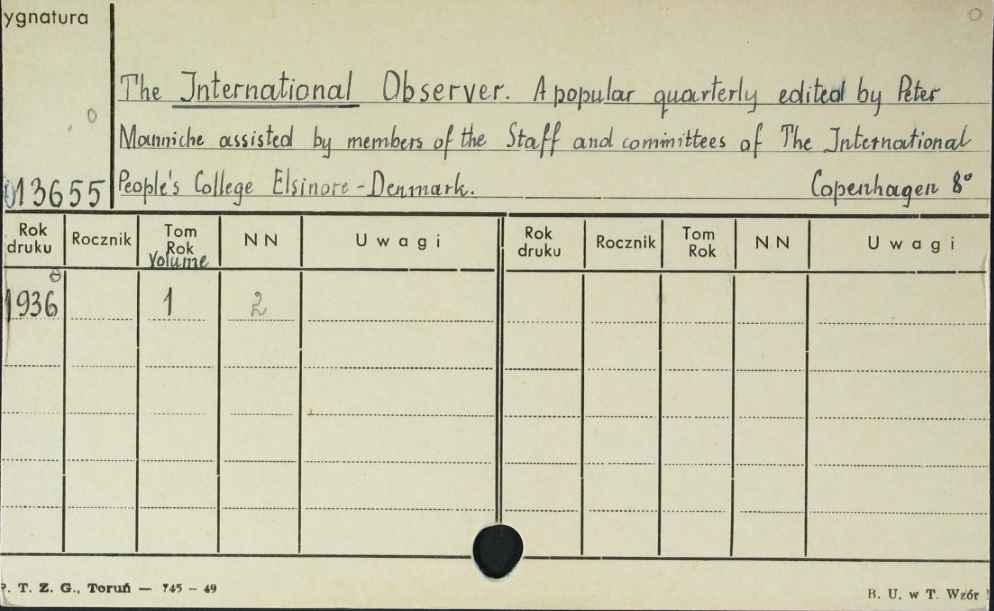 ygnatura
The International Observer. A popular quarterly edited by Peter
Manniche assisted by members of the Staff and committees of The International
013655 People's College Elsinore - Denmark. Copenhagen 8°
Rok druku Rocznik Tom Rok Volume NN Uwagi Rok druku Rocznik Tom Rok NN Uwagi
1936 1 2
P. T. Z. G., Toruń — 745 - 49 B. U. w T. Wzór